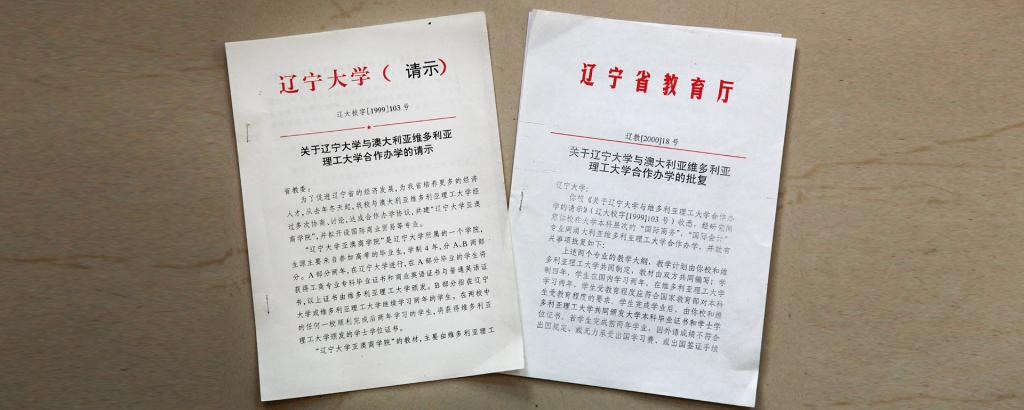 辽宁大学( 请示)
辽大校字[1999]103 号
关于辽宁大学与澳大利亚维多利亚
理工大学合作办学的请示
省教委:
为了促进辽宁省的经济发展,为我省培养更多的经济
人才,从去年冬天起,我校与澳大利亚维多利亚理工大学经
过多次协商、讨论,达成合作办学协议,共建“辽宁大学亚澳
商学院”,并拟开设国际商业贸易等专业。
“辽宁大学亚澳商学院”是辽宁大学所属的一个学院,
生源主要来自参加高考的毕业生,学制 4 年,分 A、B 两部
分。A 部分两年,在辽宁大学进行,在 A 部分毕业的学生将
获得工商专业专科毕业证书和商业英语证书与普通英语证
书,以上证书由维多利亚理工大学颁发。B 部分指在辽宁
大学或维多利亚理工大学继续学习两年的学生。在两校中
的任何一校顺利完成后两年学习的学生,将获得维多利亚
理工大学颁发的学士学位证书。
“辽宁大学亚澳商学院”的教材,主要由维多利亚理工
辽宁省教育厅
辽教[2000]18 号
关于辽宁大学与澳大利亚维多利亚
理工大学合作办学的批复
辽宁大学:
你校《关于辽宁大学与维多利亚理工大学合作办
学的请示》(辽大校字[1999]103 号)收悉。经研究同
意你校在大学本科层次的“国际商务”、“国际会计”
专业同澳大利亚维多利亚理工大学合作办学,并就有
关事项批复如下:
上述两个专业的教学大纲、教学计划由你校和维
多利亚理工大学共同制定,教材由双方共同编写;学
制四年,学生在国内学习两年,在维多利亚理工大学
学习两年,学生受教育程度应符合国家教育部对本科
生受教育程度的要求。学生完成学业后,由你校和维
多利亚理工大学共同颁发大学本科毕业证书和学士学
位证书。若学生完成前两年学业,因外语成绩不符合
出国规定、或无力承受出国学习费、或出国签证手续